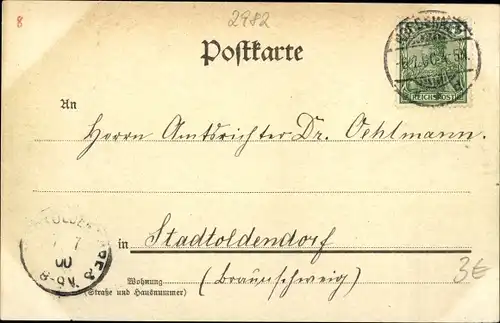 8
2982
Postkarte
REICHSPOST
An
Herrn Amtsrichter Dr. Oehlmann.
in Stadtoldendorf
Wohnung
(Straße und Hausnummer)
(Braunschweig)
3€